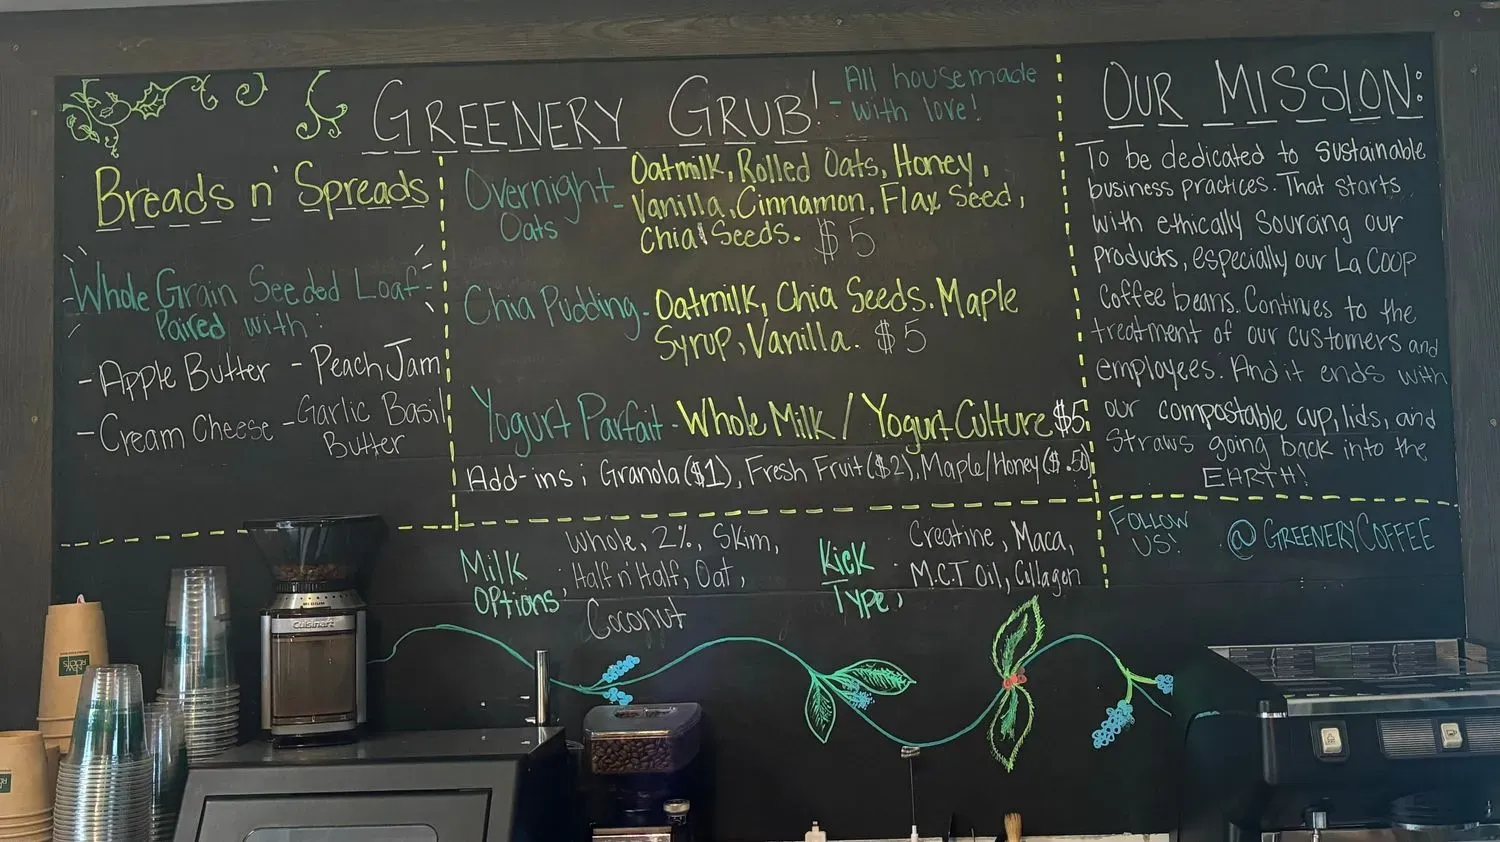 GREENERY GRUB!
- All housemade
with love!
Breads n' Spreads
Whole Grain Seeded Loaf
Paired with:
- Apple Butter - Peach Jam
- Cream Cheese - Garlic Basil
Butter
Overnight
Oats
- Oatmilk, Rolled Oats, Honey,
Vanilla, Cinnamon, Flax Seed,
Chia Seeds. $5
Chia Pudding - Oatmilk, Chia Seeds. Maple
Syrup, Vanilla. $5
Yogurt Parfait - Whole Milk / Yogurt Culture $5
Add-ins; Granola ($1), Fresh Fruit ($2), Maple/Honey ($.50)
Milk
Options;
Whole, 2%, Skim,
Half n' Half, Oat,
Coconut
Kick
Type;
Creatine, Maca,
M.C.T Oil, Collagen
OUR MISSION:
To be dedicated to sustainable
business practices. That starts
with ethically sourcing our
products, especially our La COOP
Coffee beans. Continues to the
treatment of our customers and
employees. And it ends with
our compostable cup, lids, and
straws going back into the
EARTH!
FOLLOW
US!
@GREENERYCOFFEE
Cuisinart